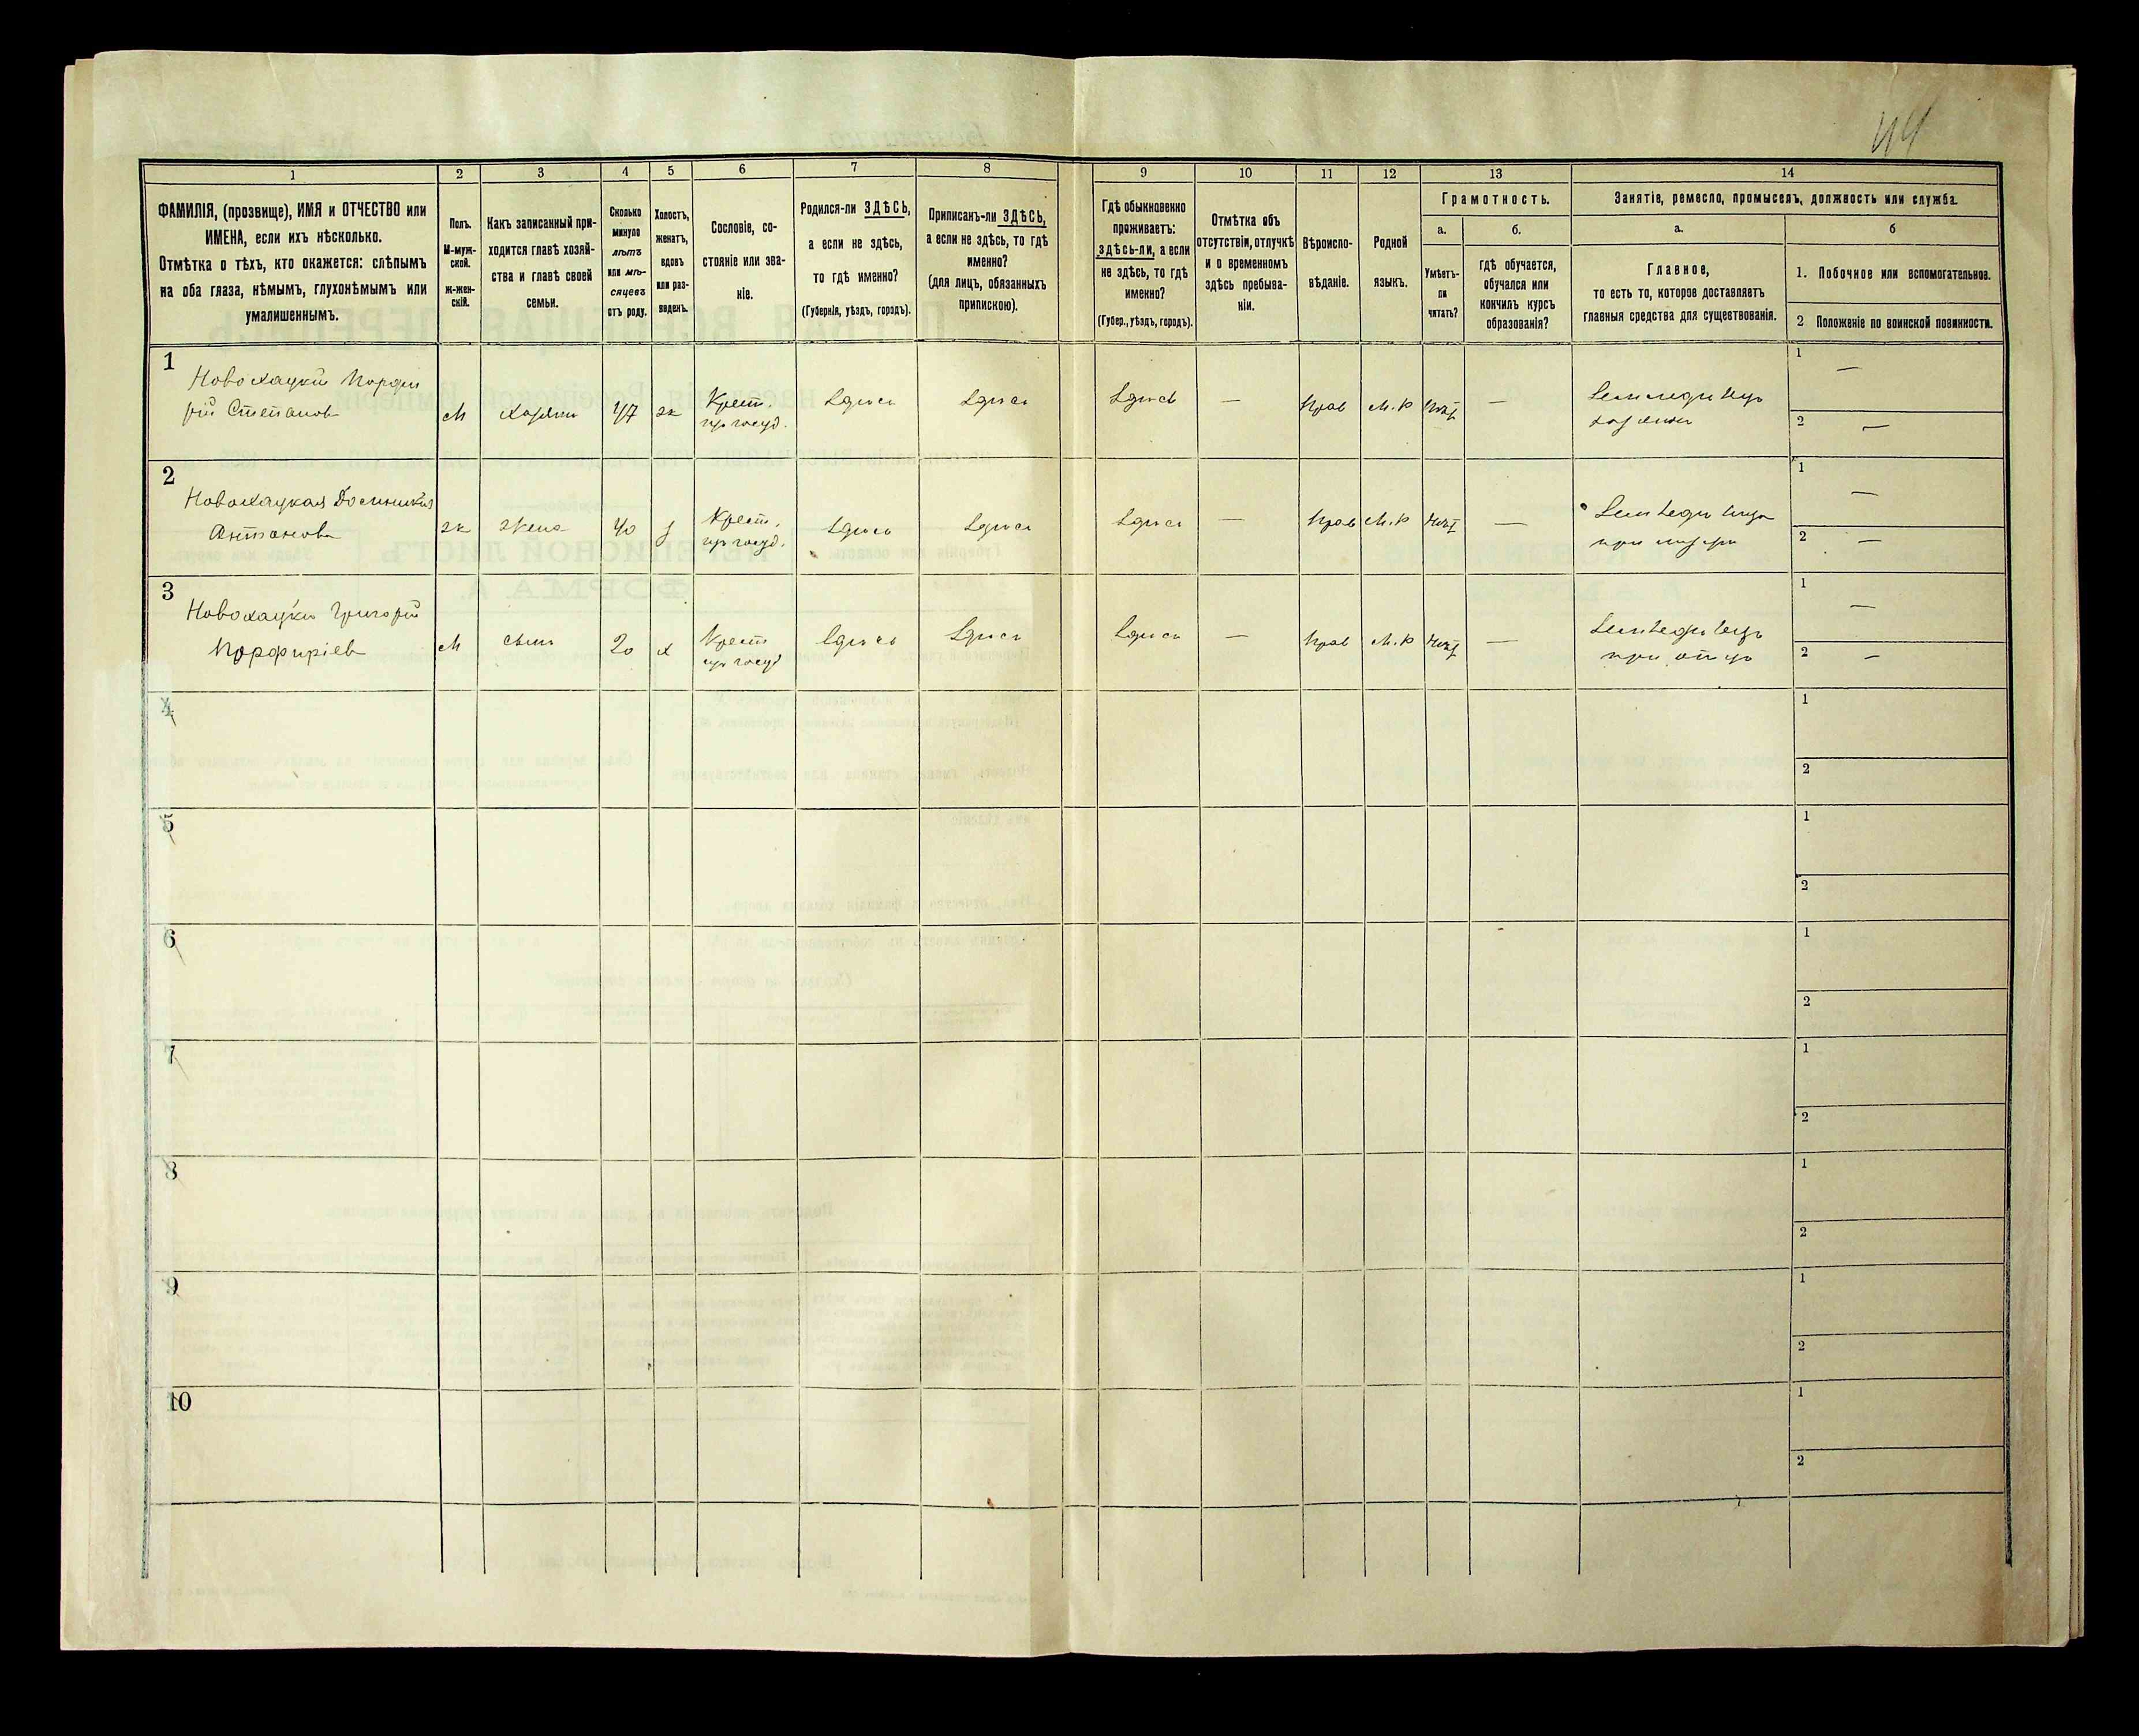 44
1
2
3
4
5
6
7
8
9
10
11
12
13
14
ФАМИЛІЯ, (прозвище), ИМЯ и ОТЧЕСТВО или
ИМЕНА, если ихъ нѣсколько.
Отмѣтка о тѣхъ, кто окажется: слѣпымъ
на оба глаза, нѣмымъ, глухонѣмымъ или
умалишеннымъ.
Полъ.
М-муж-
ской.
ж-жен-
скій.
Какъ записанный при-
ходится главѣ хозяй-
ства и главѣ своей
семьи.
Сколько
минуло
лѣтъ
или мѣ-
сяцевъ
отъ роду.
Холостъ,
женатъ,
вдовъ
или раз-
веденъ.
Сословіе, со-
стояніе или зва-
ніе.
Родился-ли ЗДѢСЬ,
а если не здѣсь,
то гдѣ именно?
(Губернія, уѣздъ, городъ).
Приписанъ-ли ЗДѢСЬ,
а если не здѣсь, то гдѣ
именно?
(для лицъ, обязанныхъ
припискою).
Гдѣ обыкновенно
проживаетъ:
здѣсь-ли, а если
не здѣсь, то гдѣ
именно?
(Губер., уѣздъ, городъ).
Отмѣтка объ
отсутствіи, отлучкѣ
и о временномъ
здѣсь пребыва-
ніи.
Вѣроиспо-
вѣданіе.
Родной
языкъ.
Грамотность.
а.
Умѣетъ-
ли
читать?
б.
гдѣ обучается,
обучался или
кончилъ курсъ
образованія?
Занятіе, ремесло, промыселъ, должность или служба.
а.
Главное,
то есть то, которое доставляетъ
главныя средства для существованія.
б
1. Побочное или вспомогательное.
2 Положеніе по воинской повинности.
1
Новохацкій Порфи
рій Степановъ
М
хозяинъ
47
ж
Крест.
из госуд.
Здѣсь
Здѣсь
Здѣсь
—
Прав
М.Р
—
хозяинъ
1
—
2
—
2
Новохацкая Домникія
Антонова
ж
жена
40
з
Крест.
из госуд.
Здѣсь
Здѣсь
Здѣсь
—
Прав
М.Р
—
при мужѣ
1
—
2
—
3
Новохацкій Григорій
Порфиріевъ
М
сынъ
20
х
Крест
из госуд
Здѣсь
Здѣсь
Здѣсь
—
Прав
М.Р
—
при отцѣ
1
—
2
—
4
1
2
5
1
2
6
1
2
7
1
2
8
1
2
9
1
2
10
1
2